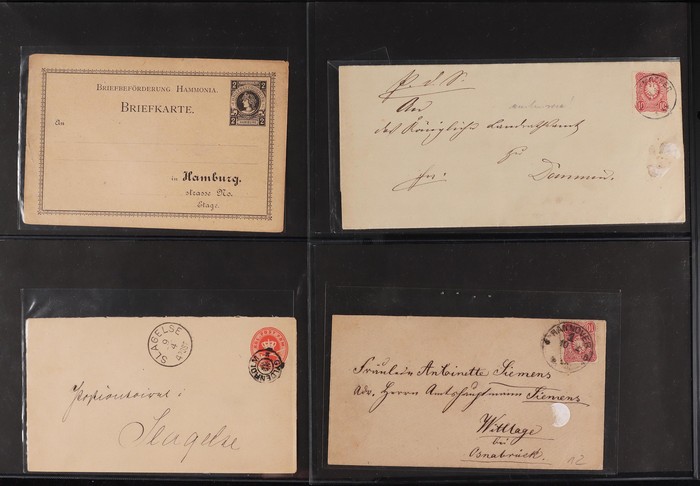 BRIEFBEFÖRDERUNG HAMMONIA.
BRIEFKARTE.
2 2
An
in Hamburg.
strasse No.
Etage.
P. d. S.
An
das Königliche Landrathsamt
zu
SLAGELSE
9 4
Slagelse
HANNOVER
Fräulein Antoinette Siemens
Adr. Herrn Amtshauptmann Siemens
Wittlage
bei
Osnabrück.
12